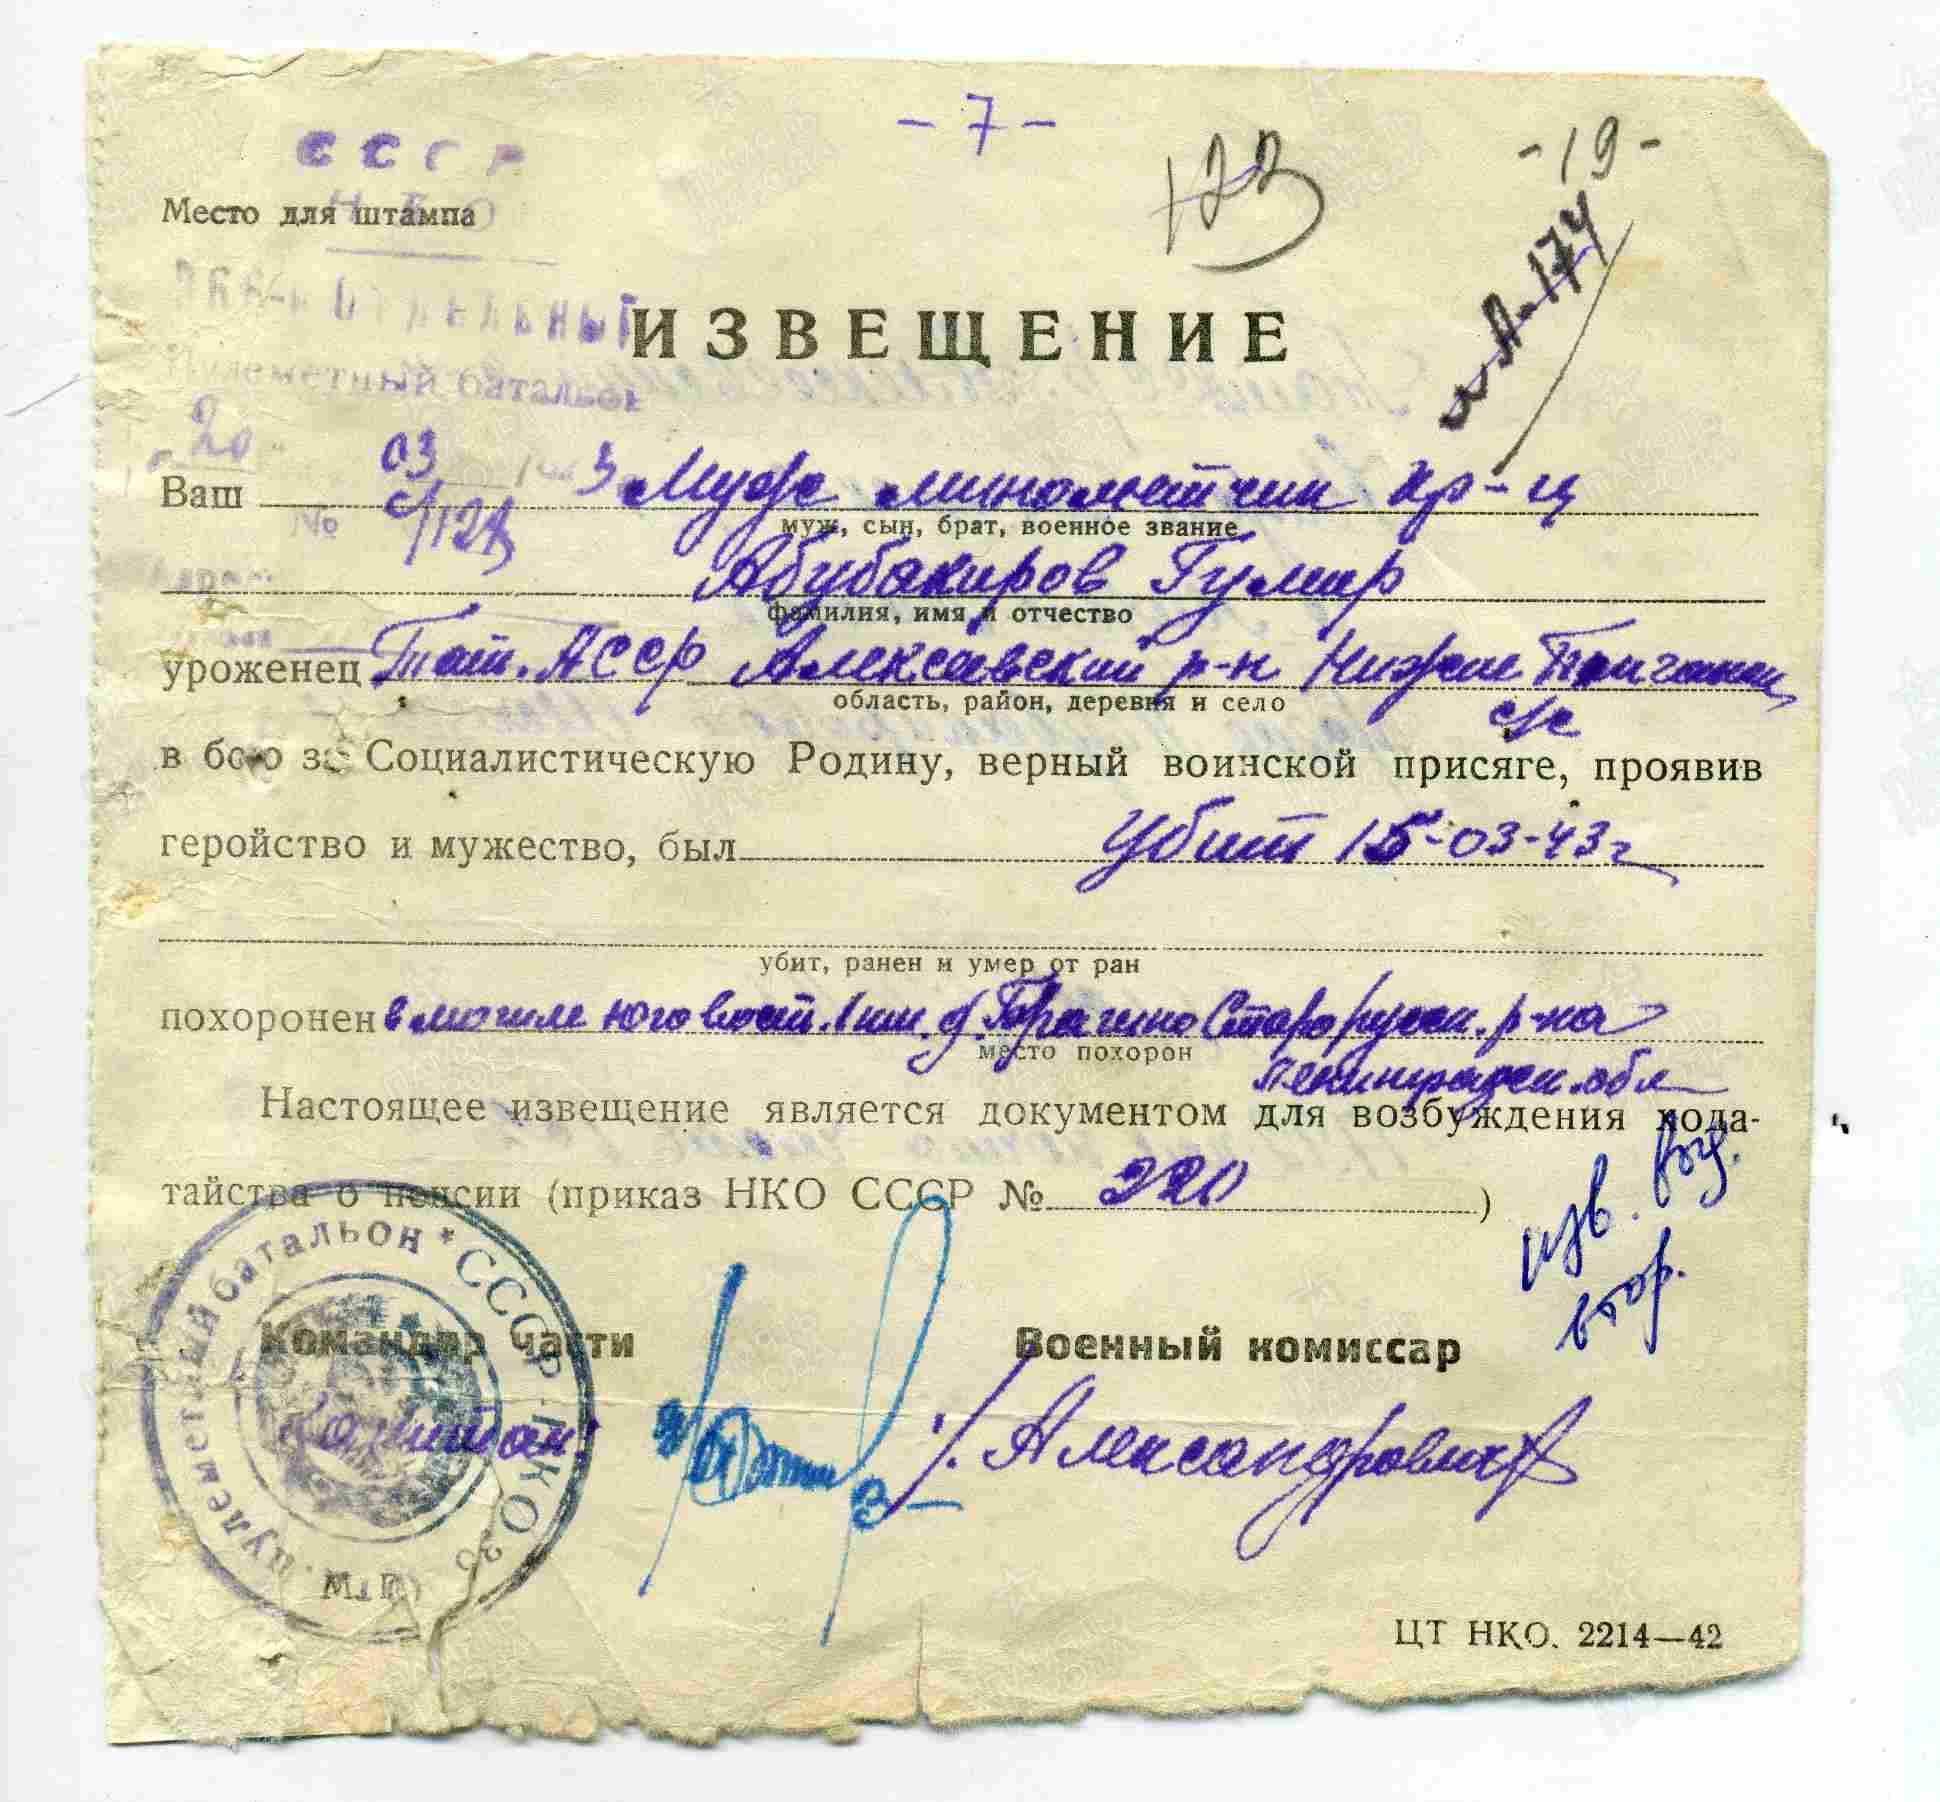 - 7 -
-19-
173
А-174
СССР
НКО
Место для штампа
Отдельный
ИЗВЕЩЕНИЕ
Пулеметный батальон
20 03 1943
Ваш Муж минометчик кр-ц
муж, сын, брат, военное звание
№ с/124
Абубакиров Гумир
фамилия, имя и отчество
уроженец Тат. АССР Алексеевский р-н Нижне
область, район, деревня и село
с/с
в бою за Социалистическую Родину, верный воинской присяге, проявив
геройство и мужество, был убит 15-03-43г
убит, ранен и умер от ран
похоронен в могиле юго вост. 1 км. д. Старорусск. р-на
место похорон
Ленинградск. обл
Настоящее извещение является документом для возбуждения хода-
тайства о пенсии (приказ НКО СССР № 220 )
изв.
втор.
Командир части Военный комиссар
Капитан: Александрович
пулеметный батальон * СССР - НКО
ЦТ НКО. 2214—42